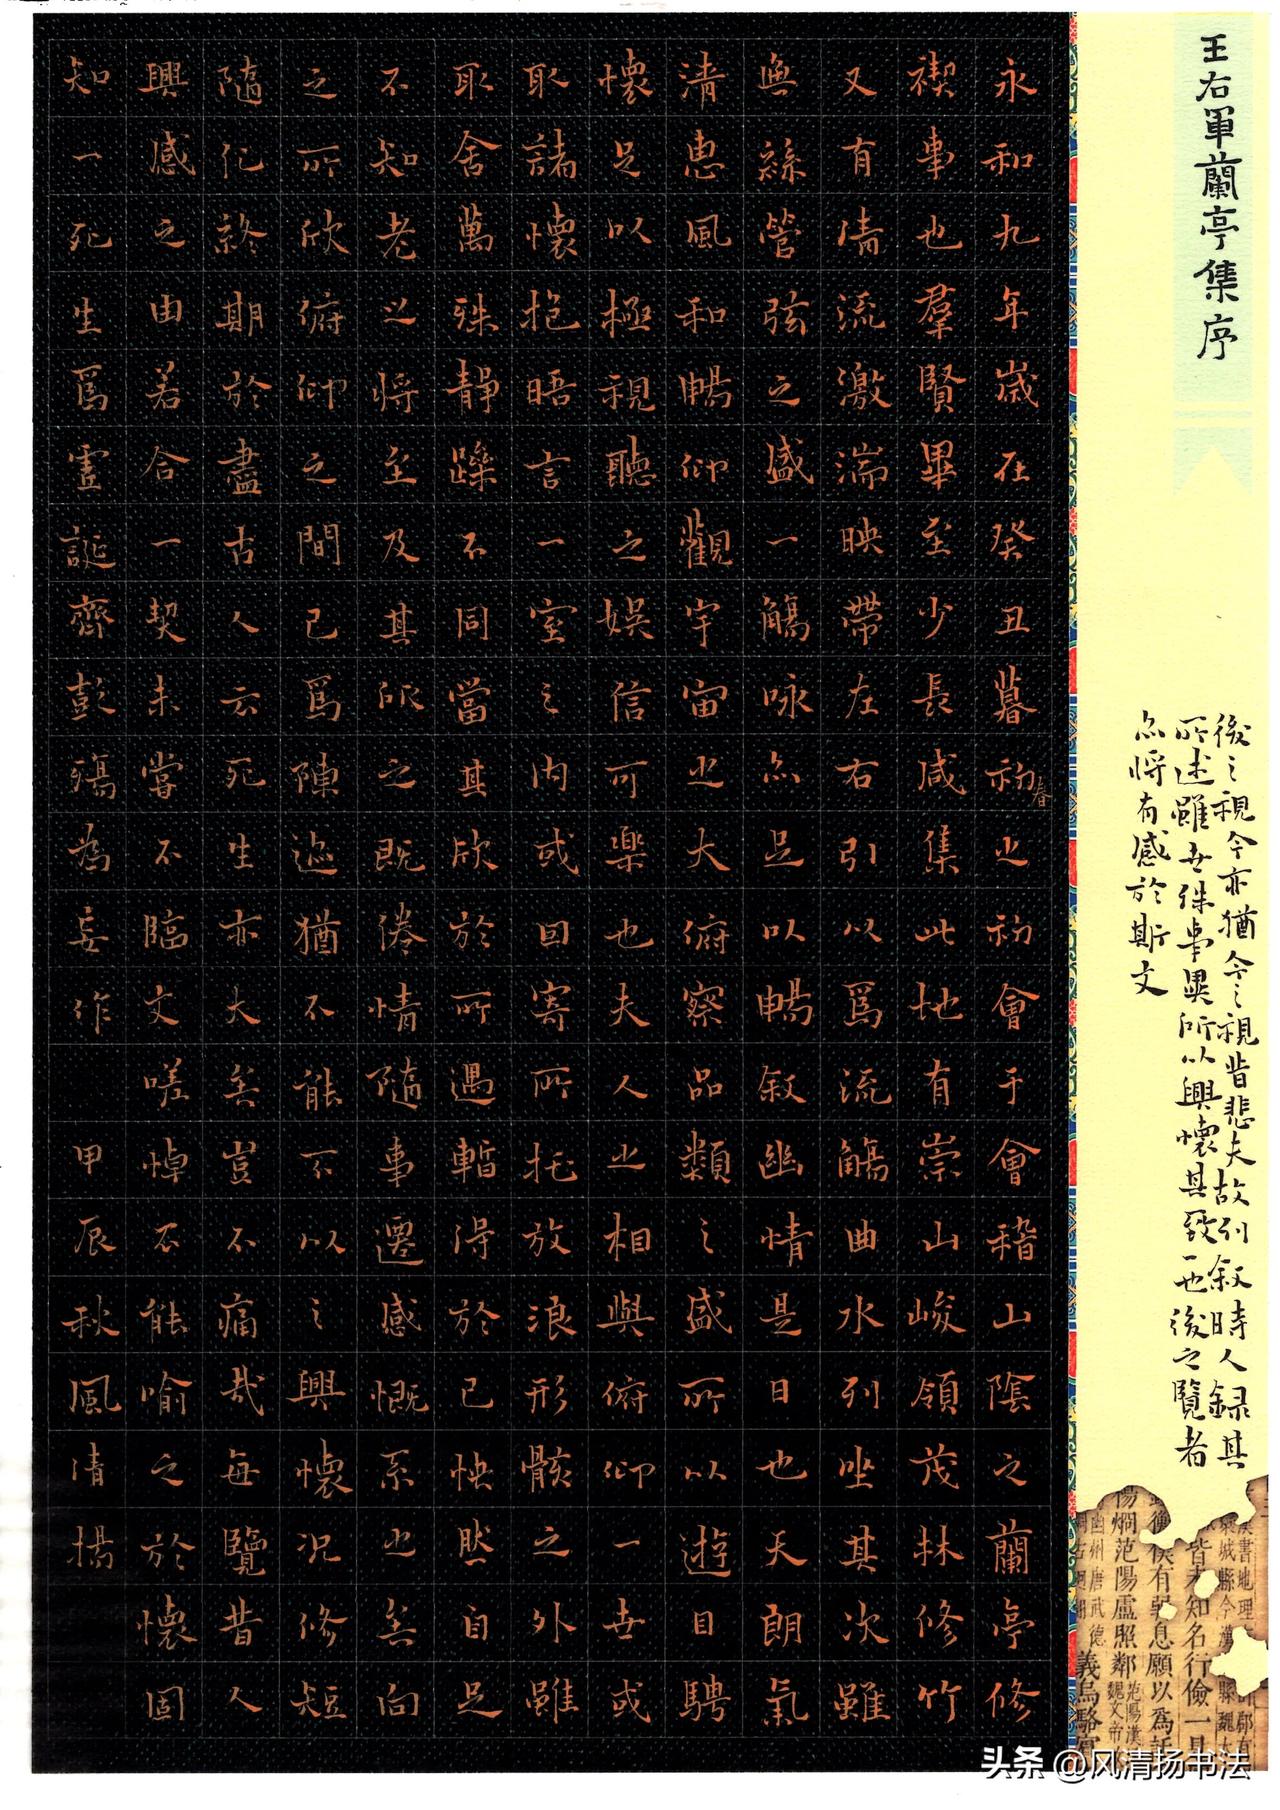 王右軍蘭亭集序
後之視今亦猶今之視昔悲夫故列叙時人録其
所述雖世殊事異所以興懷其致一也後之覽者
亦將有感於斯文
永和九年歲在癸丑暮初之初會于會稽山陰之蘭亭修
春
禊事也羣賢畢至少長咸集此地有崇山峻領茂林修竹
又有清流激湍映帶左右引以爲流觴曲水列坐其次雖
無絲管弦之盛一觴咏亦足以暢叙幽情是日也天朗氣
清惠風和暢仰觀宇宙之大俯察品類之盛所以遊目騁
懷足以極視聽之娛信可樂也夫人之相與俯仰一世或
取諸懷抱晤言一室之内或回寄所托放浪形骸之外雖
取舍萬殊靜躁不同當其欣於所遇暫得於己快然自足
不知老之將至及其所之既倦情隨事遷感慨系之矣向
之所欣俯仰之間已爲陳迹猶不能不以之興懷況修短
隨化終期於盡古人云死生亦大矣豈不痛哉每覽昔人
興感之由若合一契未嘗不臨文嗟悼不能喻之於懷固
知一死生爲虛誕齊彭殤為妄作 甲辰秋風清揚
皆未知名行儉一見
有弱息願以為
范陽盧照鄰
義烏駱
头条 @风清扬书法